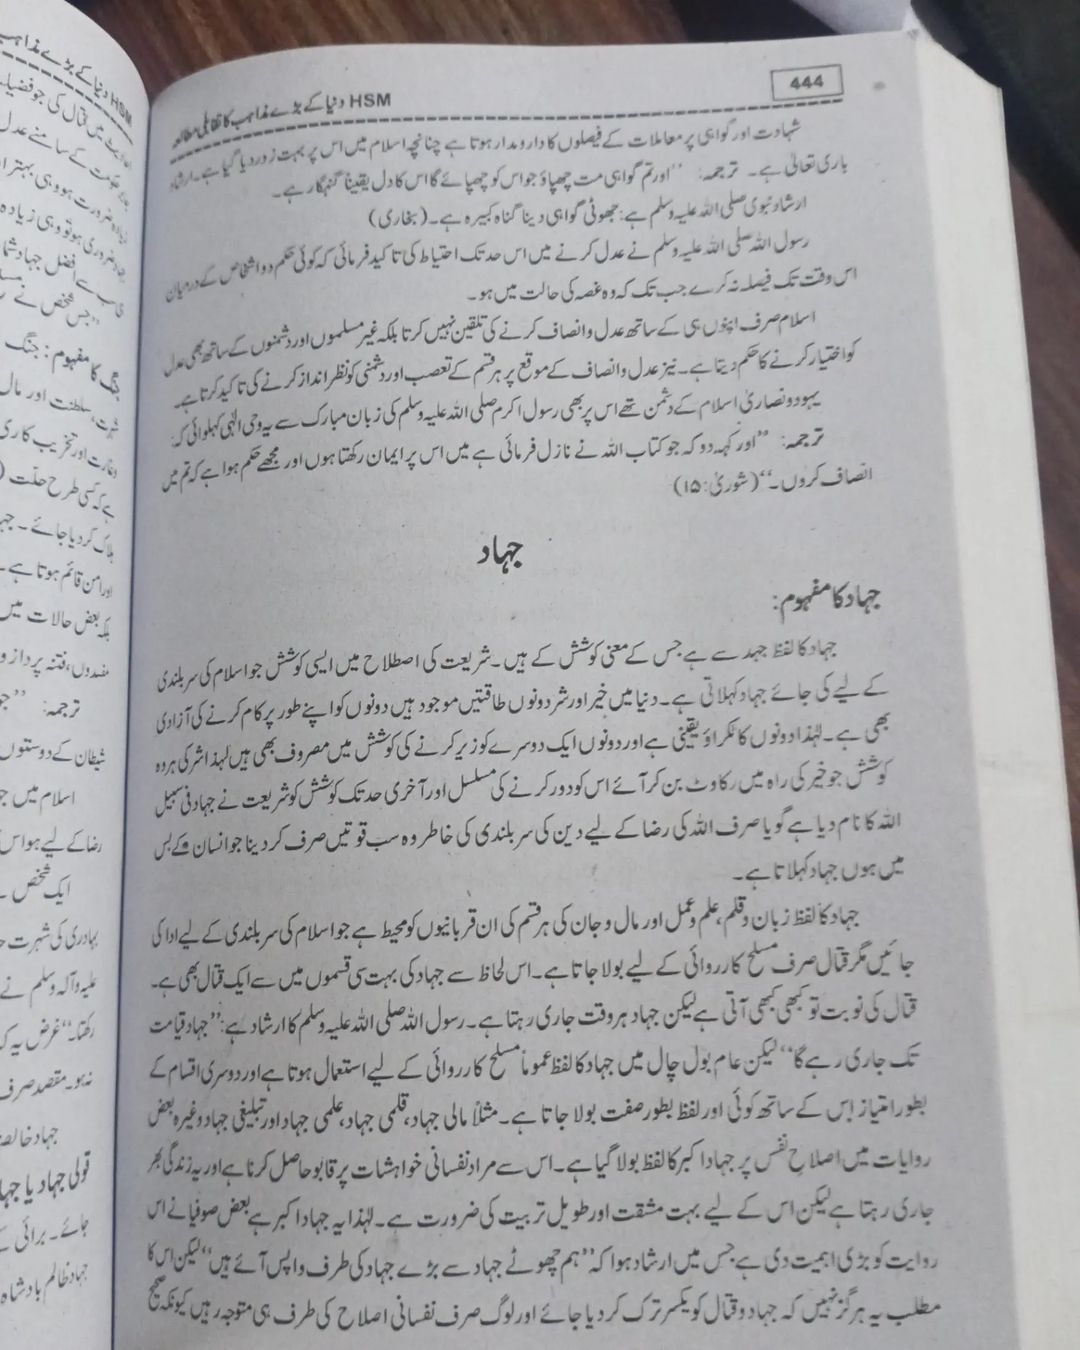 444
HSM دنیا کے بڑے مذاہب کا تقابلی مطالعہ
شہادت اور گواہی پر معاملات کے فیصلوں کا دارومدار ہوتا ہے چنانچہ اسلام میں اس پر بہت زور دیا گیا ہے۔ ارشاد
باری تعالیٰ ہے۔ ترجمہ: ’’اور تم گواہی مت چھپاؤ جو اس کو چھپائے گا اس کا دل یقیناً گنہگار ہے۔
ارشاد نبوی صلی اللہ علیہ وسلم ہے: جھوٹی گواہی دینا گناہ کبیرہ ہے۔ (بخاری)
رسول اللہ صلی اللہ علیہ وسلم نے عدل کرنے میں اس حد تک احتیاط کی تاکید فرمائی کہ کوئی حکم دو اشخاص کے درمیان
اس وقت تک فیصلہ نہ کرے جب تک کہ وہ غصہ کی حالت میں ہو۔
اسلام صرف اپنوں ہی کے ساتھ عدل وانصاف کرنے کی تلقین نہیں کرتا بلکہ غیر مسلموں اور دشمنوں کے ساتھ بھی عدل
کو اختیار کرنے کا حکم دیتا ہے۔ نیز عدل وانصاف کے موقع پر ہر قسم کے تعصب اور دشمنی کو نظر انداز کرنے کی تاکید کرتا ہے۔
یہود و نصاریٰ اسلام کے دشمن تھے اس پر بھی رسول اکرم صلی اللہ علیہ وسلم کی زبان مبارک سے یہ وحی الٰہی کہلوائی کہ:
ترجمہ: ’’اور کہہ دو کہ جو کتاب اللہ نے نازل فرمائی ہے میں اس پر ایمان رکھتا ہوں اور مجھے حکم ہوا ہے کہ تم میں
انصاف کروں۔‘‘ (شوریٰ: ۱۵)
جہاد
جہاد کا مفہوم:
جہاد کا لفظ جہد سے ہے جس کے معنی کوشش کے ہیں۔ شریعت کی اصطلاح میں ایسی کوشش جو اسلام کی سربلندی
کے لیے کی جائے جہاد کہلاتی ہے۔ دنیا میں خیر اور شر دونوں طاقتیں موجود ہیں دونوں کو اپنے طور پر کام کرنے کی آزادی
بھی ہے۔ لہٰذا دونوں کا ٹکراؤ یقینی ہے اور دونوں ایک دوسرے کو زیر کرنے کی کوشش میں مصروف بھی ہیں لہٰذا شر کی ہر وہ
کوشش جو خیر کی راہ میں رکاوٹ بن کر آئے اس کو دور کرنے کی مسلسل اور آخری حد تک کوشش کو شریعت نے جہاد فی سبیل
اللہ کا نام دیا ہے گویا صرف اللہ کی رضا کے لیے دین کی سربلندی کی خاطر وہ سب قوتیں صرف کر دینا جو انسان کے بس
میں ہوں جہاد کہلاتا ہے۔
جہاد کا لفظ زبان و قلم، علم و عمل اور مال و جان کی ہر قسم کی ان قربانیوں کو محیط ہے جو اسلام کی سربلندی کے لیے ادا کی
جائیں مگر قتال صرف مسلح کارروائی کے لیے بولا جاتا ہے۔ اس لحاظ سے جہاد کی بہت سی قسموں میں سے ایک قتال بھی ہے۔
قتال کی نوبت تو کبھی کبھی آتی ہے لیکن جہاد ہر وقت جاری رہتا ہے۔ رسول اللہ صلی اللہ علیہ وسلم کا ارشاد ہے: ’’جہاد قیامت
تک جاری رہے گا‘‘ لیکن عام بول چال میں جہاد کا لفظ عموماً مسلح کارروائی کے لیے استعمال ہوتا ہے اور دوسری اقسام کے
بطور امتیاز اس کے ساتھ کوئی اور لفظ بطور صفت بولا جاتا ہے۔ مثلاً مالی جہاد، قلمی جہاد، علمی جہاد اور تبلیغی جہاد وغیرہ بعض
روایات میں اصلاح نفس پر جہاد اکبر کا لفظ بولا گیا ہے۔ اس سے مراد نفسانی خواہشات پر قابو حاصل کرنا ہے اور یہ زندگی بھر
جاری رہتا ہے لیکن اس کے لیے بہت مشقت اور طویل تربیت کی ضرورت ہے۔ لہٰذا یہ جہاد اکبر ہے بعض صوفیا نے اس
روایت کو بڑی اہمیت دی ہے جس میں ارشاد ہوا کہ ’’ہم چھوٹے جہاد سے بڑے جہاد کی طرف واپس آئے ہیں‘‘ لیکن اس کا
مطلب یہ ہرگز نہیں کہ جہاد و قتال کو یکسر ترک کر دیا جائے اور لوگ صرف نفسانی اصلاح کی طرف ہی متوجہ رہیں کیونکہ صحیح